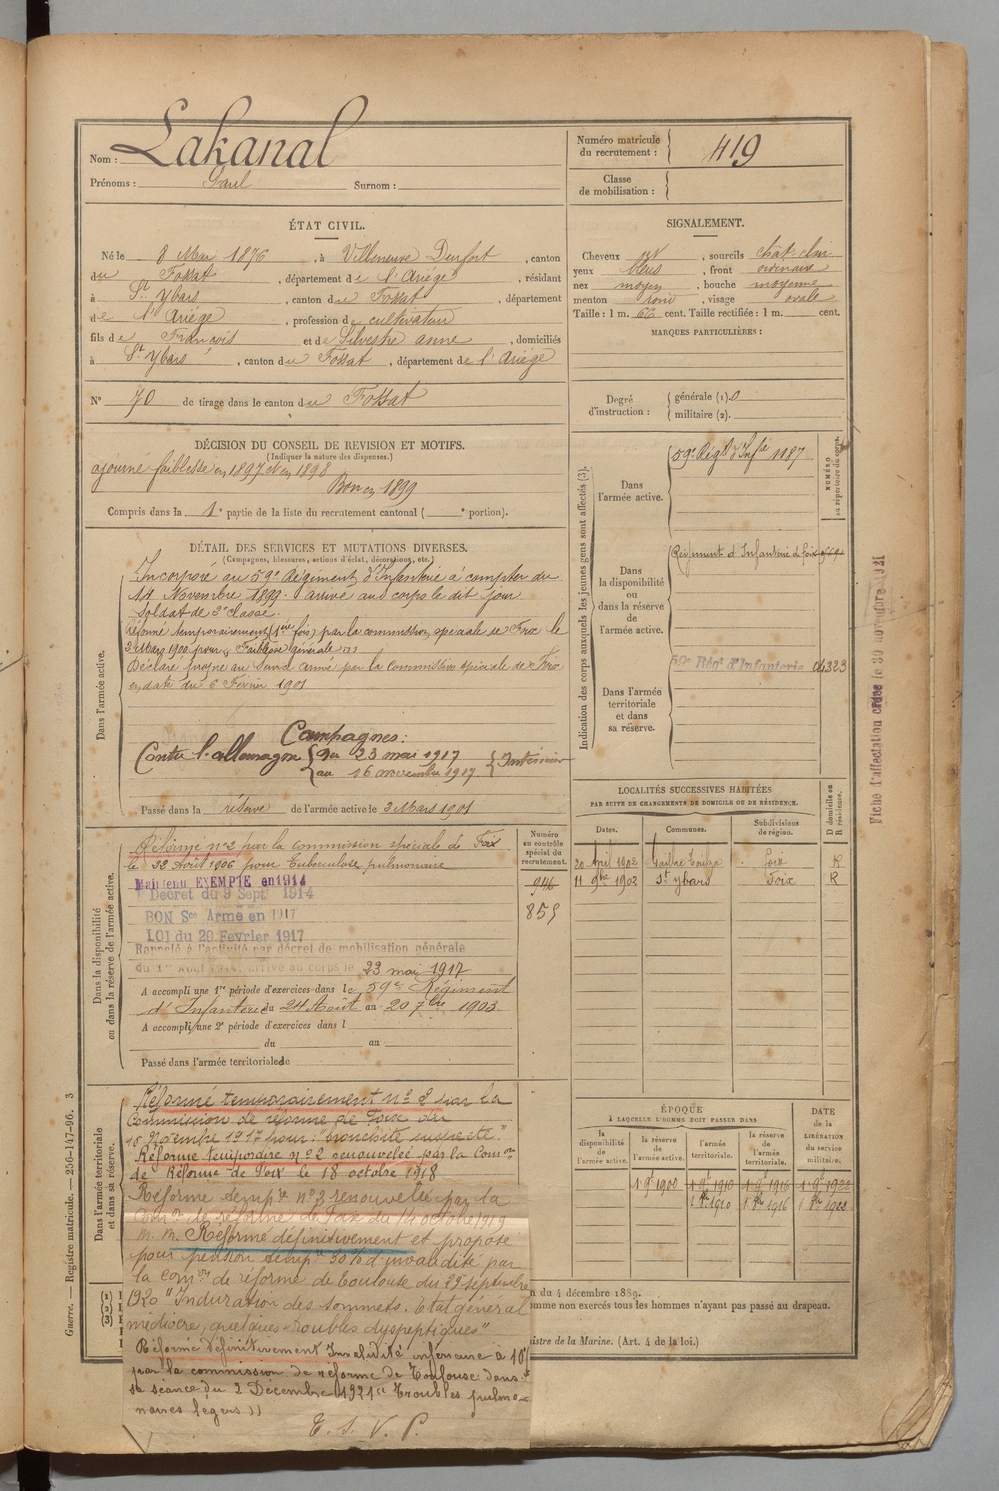 Nom : Lakanal
Prénoms : Paul Surnom :
Numéro matricule du recrutement : 419
Classe de mobilisation :
ÉTAT CIVIL.
Né le 8 Mai 1876, à Villeneuve Durfort, canton
du Fossat, département de l'Ariége, résidant
à St Ybars, canton du Fossat, département
de l'Ariége, profession de cultivateur
fils de François et de Silvestre anne, domiciliés
à St Ybars, canton du Fossat, département de l'Ariége
N° 70 de tirage dans le canton du Fossat
SIGNALEMENT.
Cheveux , sourcils chat-clair
yeux bleus, front ordinaire
nez moyen, bouche moyenne
menton rond, visage ovale
Taille : 1 m. 66 cent. Taille rectifiée : 1 m. cent.
MARQUES PARTICULIÈRES :
Degré d'instruction : générale (1) 0
militaire (2).
DÉCISION DU CONSEIL DE REVISION ET MOTIFS.
(Indiquer la nature des dispenses.)
ajourné faiblesse en 1897 et en 1898
Bon en 1899
Compris dans la 1e partie de la liste du recrutement cantonal ( e portion).
DÉTAIL DES SERVICES ET MUTATIONS DIVERSES.
(Campagnes, blessures, actions d'éclat, décorations, etc.)
Dans l'armée active.
Incorporé au 59e Régiment d'Infanterie à compter du
14 Novembre 1899. arrivé au corps le dit jour
soldat de 2e classe.
Réformé temporairement (1ère fois) par la commission spéciale de Foix le
Mars 1900 pour Faiblesse générale
Déclaré propre au Service armé par la commission spéciale de Foix
en date du 6 Février 1901
Campagnes :
Contre l'allemagne du 23 mai 1917
au 16 novembre 1917 Intérieur
Passé dans la réserve de l'armée active le 3 Mars 1901
Indication des corps auxquels les jeunes gens sont affectés (3).
NUMÉRO au répertoire du corps.
Dans l'armée active.
59e Régt d'Infie 1187
Dans la disponibilité ou dans la réserve de l'armée active.
Régiment d'Infanterie de Foix
Dans l'armée territoriale et dans sa réserve.
59e Rég. d'Infanterie 04323
Fiche d'affectation créée le 30 novembre 1921
LOCALITÉS SUCCESSIVES HABITÉES
PAR SUITE DE CHANGEMENTS DE DOMICILE OU DE RÉSIDENCE.
Dates. Communes. Subdivisions de région. D domicile ou R résidence.
20 Avril 1902 Gaillac Toulza Foix R
11 9bre 1902 St Ybars Foix R
Dans la disponibilité ou dans la réserve de l'armée active.
Numéro au contrôle spécial du recrutement.
946
859
Réformé n°2 par la commission spéciale de Foix
le 22 Août 1906 pour Tuberculose pulmonaire
Maintenu EXEMPTÉ en 1914
Décret du 9 Sept 1914
BON Sce Armé en 1917
LOI du 20 Février 1917
Rappelé à l'activité par décret de mobilisation générale
du 1er Août 1914 arrivé au corps le 23 mai 1917
A accompli une 1re période d'exercices dans le 59e Régiment
d'Infanterie du 24 Août au 20 7bre 1903
A accompli une 2e période d'exercices dans l
du au
Passé dans l'armée territoriale le
Dans l'armée territoriale et dans sa réserve.
Réformé temporairement n° 2 par la
Commission de réforme de Foix du
15 Novembre 1917 pour : bronchite suspecte."
Réforme temporaire n° 2 renouvelée par la Comon
de Réforme de Foix le 18 octobre 1918
Réforme tempre n° 2 renouvelée par la
Comon de réforme de Foix du 14 octobre 1919
Réformé définitivement et proposé
pour pension tempre 30 % d'invalidité par
la comon de réforme de toulouse du 29 septembre
1920 "Induration des sommets. Etat général
médiocre, quelques troubles dyspeptiques"
Réformé définitivement Invalidité inférieure à 10
par la commission de réforme de Toulouse dans
sa séance du 2 Décembre 1921 "Troubles pulmo-
naires légers"
T. S. V. P.
ÉPOQUE
À LAQUELLE L'HOMME DOIT PASSER DANS
la disponibilité de l'armée active. la réserve de l'armée active. l'armée territoriale. la réserve de l'armée territoriale. DATE de la LIBÉRATION du service militaire.
1 9 1900 1 9 1910 1 9 1916 1 9 1922
1 8bre 1910 1 8bre 1916 1 8bre 1922
n du 4 décembre 1889.
omme non exercés tous les hommes n'ayant pas passé au drapeau.
nistre de la Marine. (Art. 4 de la loi.)
(1) (2) (3)
Guerre. — Registre matricule. — 256-147-96. 3